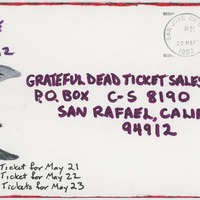 SAN JOSE CA
PM
20 MAY
1983
GRATEFUL DEAD TICKET SALES
P.O. BOX C-S 8190
SAN RAFAEL, CALIF
94912
Ticket for May 21
Ticket for May 22
Tickets for May 23